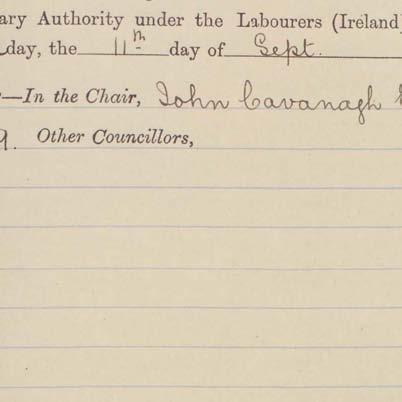 ary Authority under the Labourers (Ireland
day, the 11th day of Sept.
—In the Chair, John Cavanagh
9. Other Councillors,